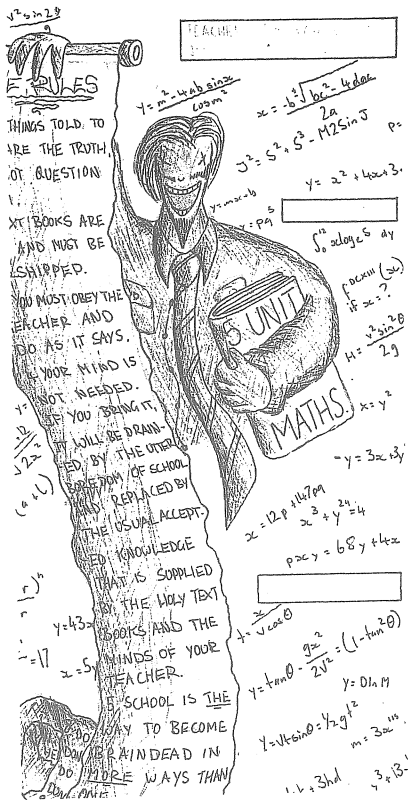 v² sin 2θ
g
E RULES
THINGS TOLD TO
ARE THE TRUTH,
OT QUESTION
XT BOOKS ARE
AND MUST BE
SHIPPED.
YOU MUST OBEY THE
EACHER AND
DO AS IT SAYS.
YOUR MIND IS
NOT NEEDED.
IF YOU BRING IT,
IT WILL BE DRAIN-
ED BY THE UTTER
BOREDOM OF SCHOOL
AND REPLACED BY
THE USUAL ACCEPT-
ED KNOWLEDGE
THAT IS SUPPLIED
BY THE HOLY TEXT
BOOKS AND THE
MINDS OF YOUR
TEACHER.
5 SCHOOL IS THE
WAY TO BECOME
BRAINDEAD IN
MORE WAYS THAN
ONE
DO
YOU
DO
5 UNIT
MATHS.
TEACHE
y = m² - 4ab sin x
cos m²
x = -b ∛bc² - 4dac
2a
J² = S² + S³ - M2 Sin J
P =
y = x² + 4x + 3.
y = mx + b
= pq⁵
∫₀¹² x log e 5 dy
if x = ?
H = v² sin² θ
2g
x = y²
= y = 3x + 3y
x = 12p + 147pq
x³ + y²⁴ = 4
pxy = 68y + 4x
t = x
v cos θ
y = tan θ - gx²
2v² = (1 - tan² θ)
y = D ln M
y = vt sin θ = ½ gt²
m = 3x
+ 3hd
y =
√2x²
(a + b)
y = 43x
= 17
x = 5y